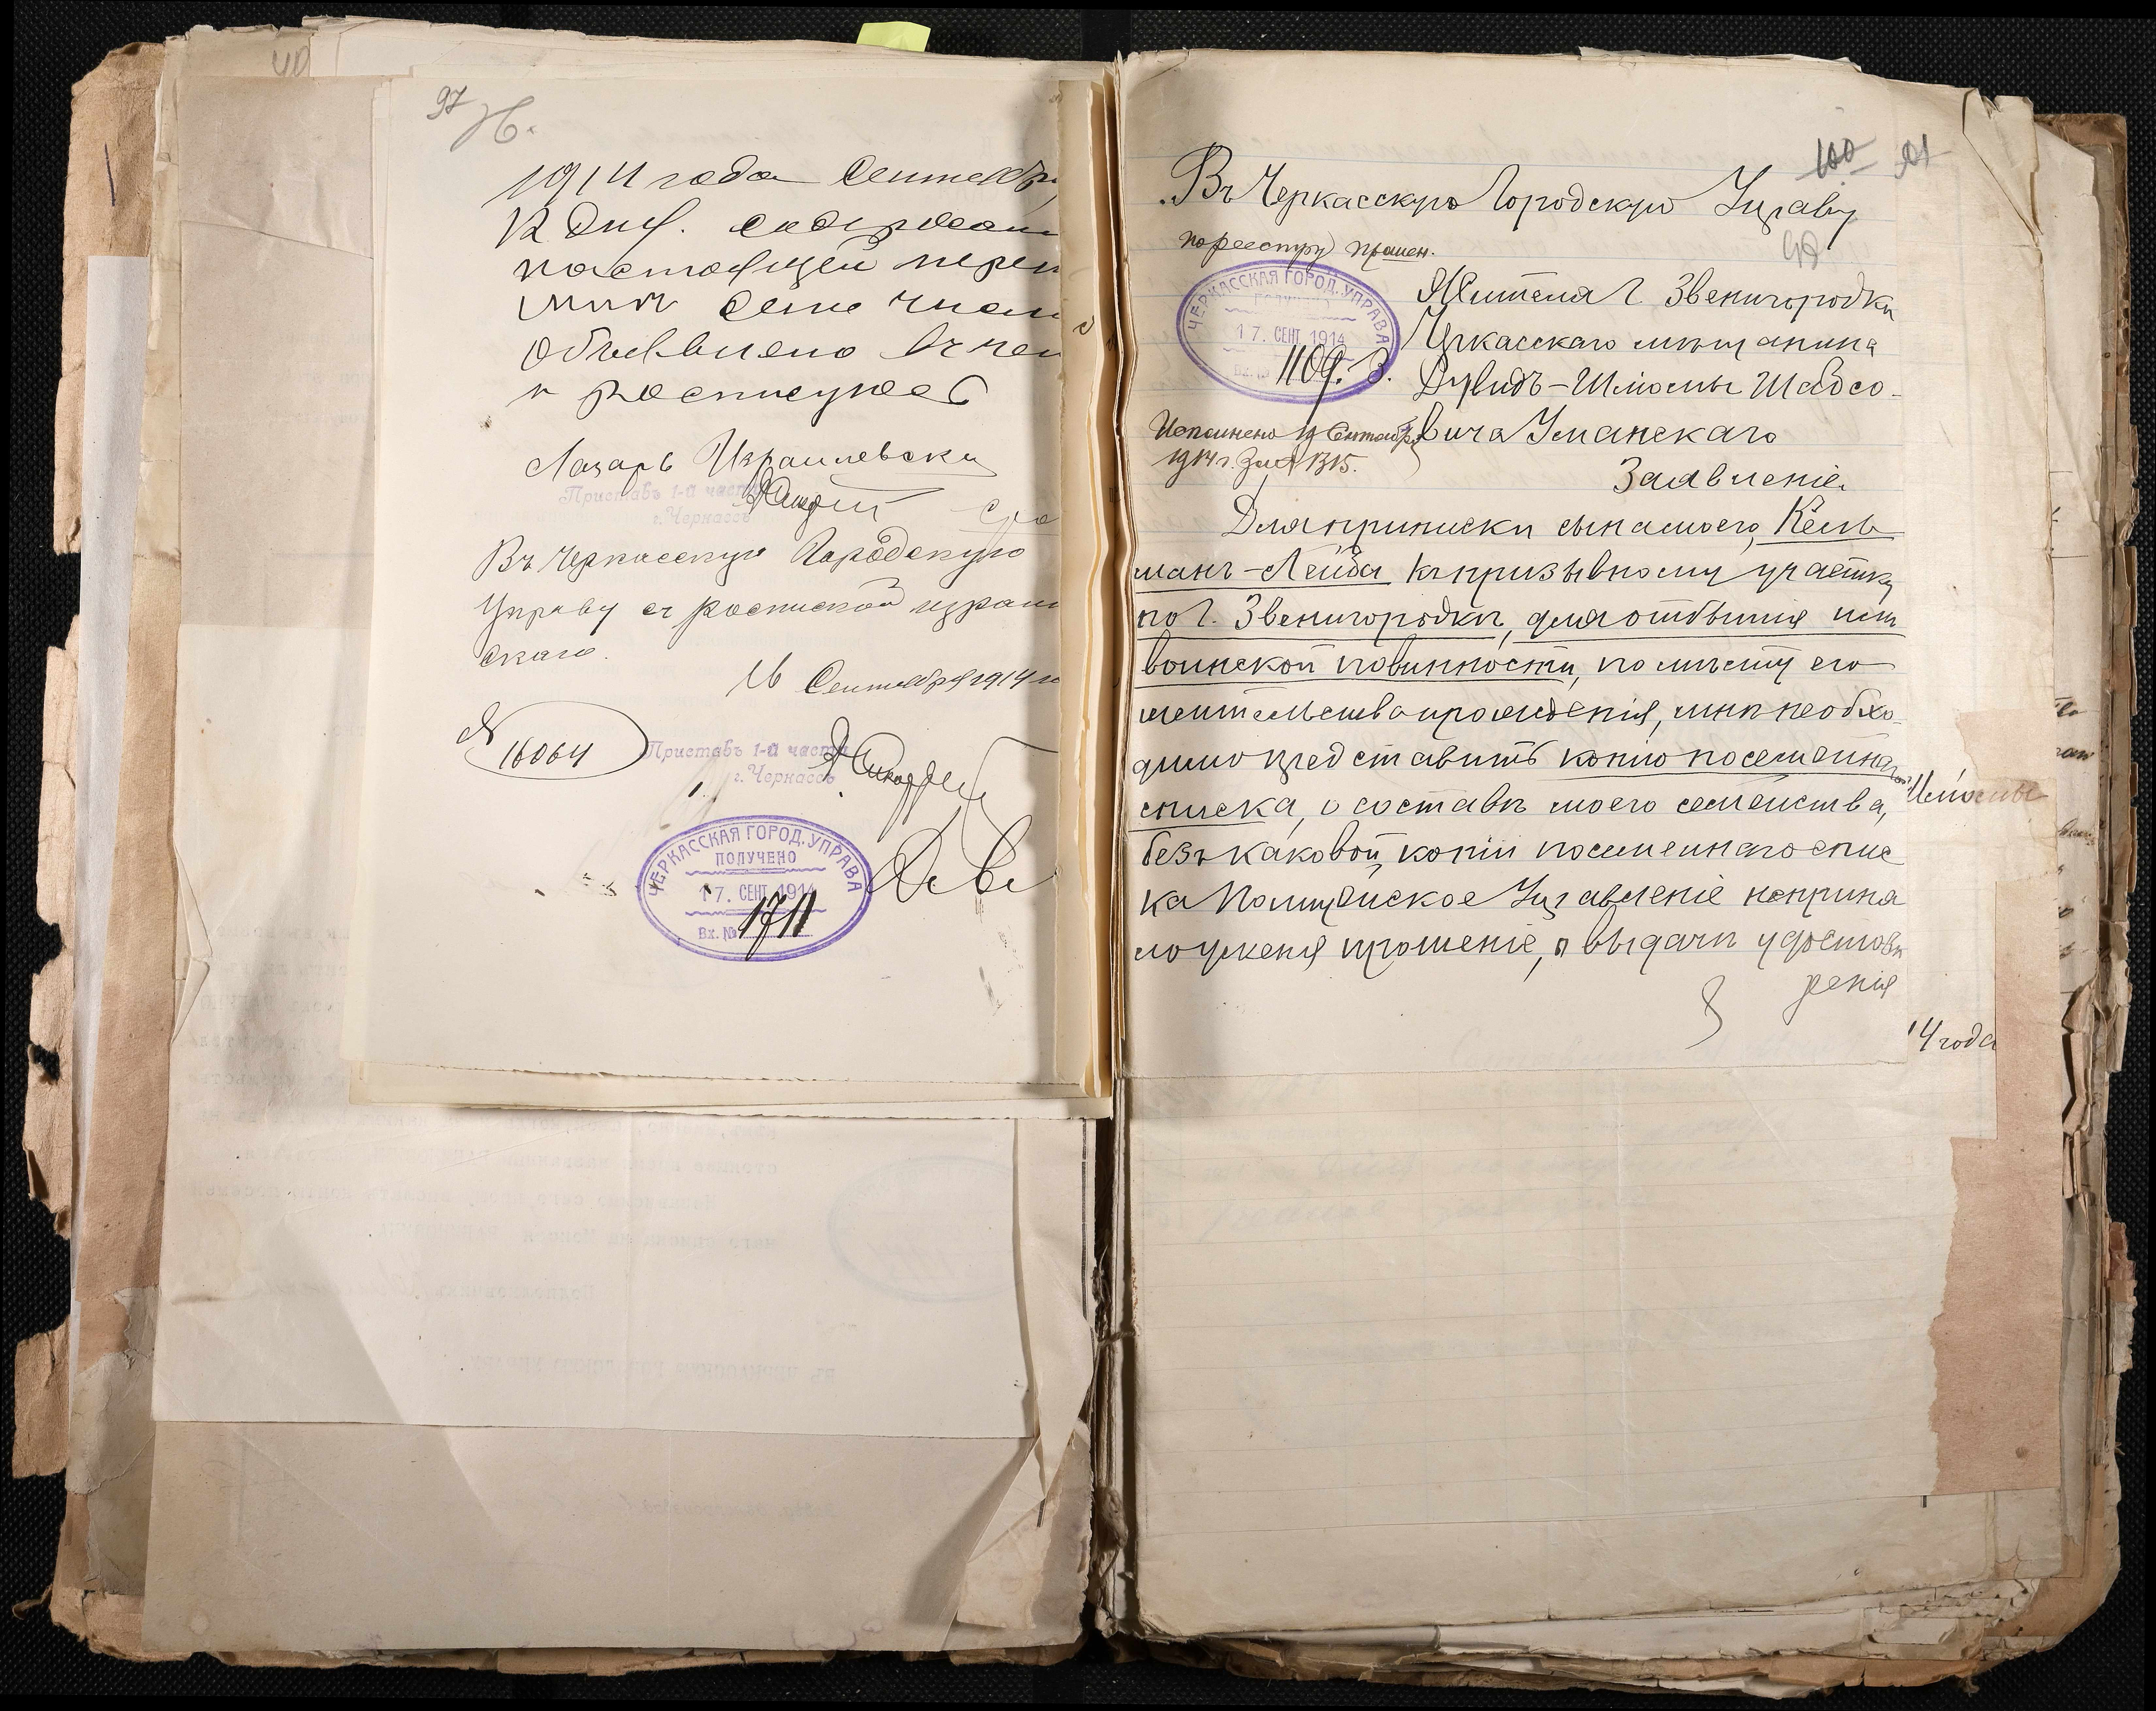 97
1914 года Сентября
12 дня. содержани
настоящей переп
мнѣ сего числ
объявлено въ чем
и росписуюсь
Лазарь Израилевскій
Приставъ 1-й части
г. Черкассъ
Въ Черкасскую Городскую
Управу съ роспиской израил
скаго.
16 Сентября 1914 г
№ 16064
Приставъ 1-й части
г. Черкассъ
ЧЕРКАССКАЯ ГОРОД. УПРАВА
ПОЛУЧЕНО
17. СЕНТ 1914
Вх. № 1711
100
Въ Черкасскую Городскую Управу
по реестру прошен.
ЧЕРКАССКАЯ ГОРОД. УПРАВА
ПОЛУЧЕНО
17. СЕНТ 1914
Вх. № 1109.
Жителя г. Звенигородки
Черкасскаго мѣщанина
Дувидъ-Шлиомы Шабсо-
вича Уманскаго
Исполнено 19 Сентября
1914 г. за № 1315.
Заявленіе.
Для приписки сына моего, Кель
манъ-Лейба къ призывному участку
по г. Звенигородкѣ, для отбытія им
воинской повинности, по мѣсту его
жительства и рожденія, мнѣ необхо-
димо представить копію посемейнаго
списка, о составѣ моего семейства,
безъ каковой, копіи посемейнаго спис
ка Полицейское Управленіе не приня
ло у меня прошеніе, о выдачи удостовѣ
ренія
4 года